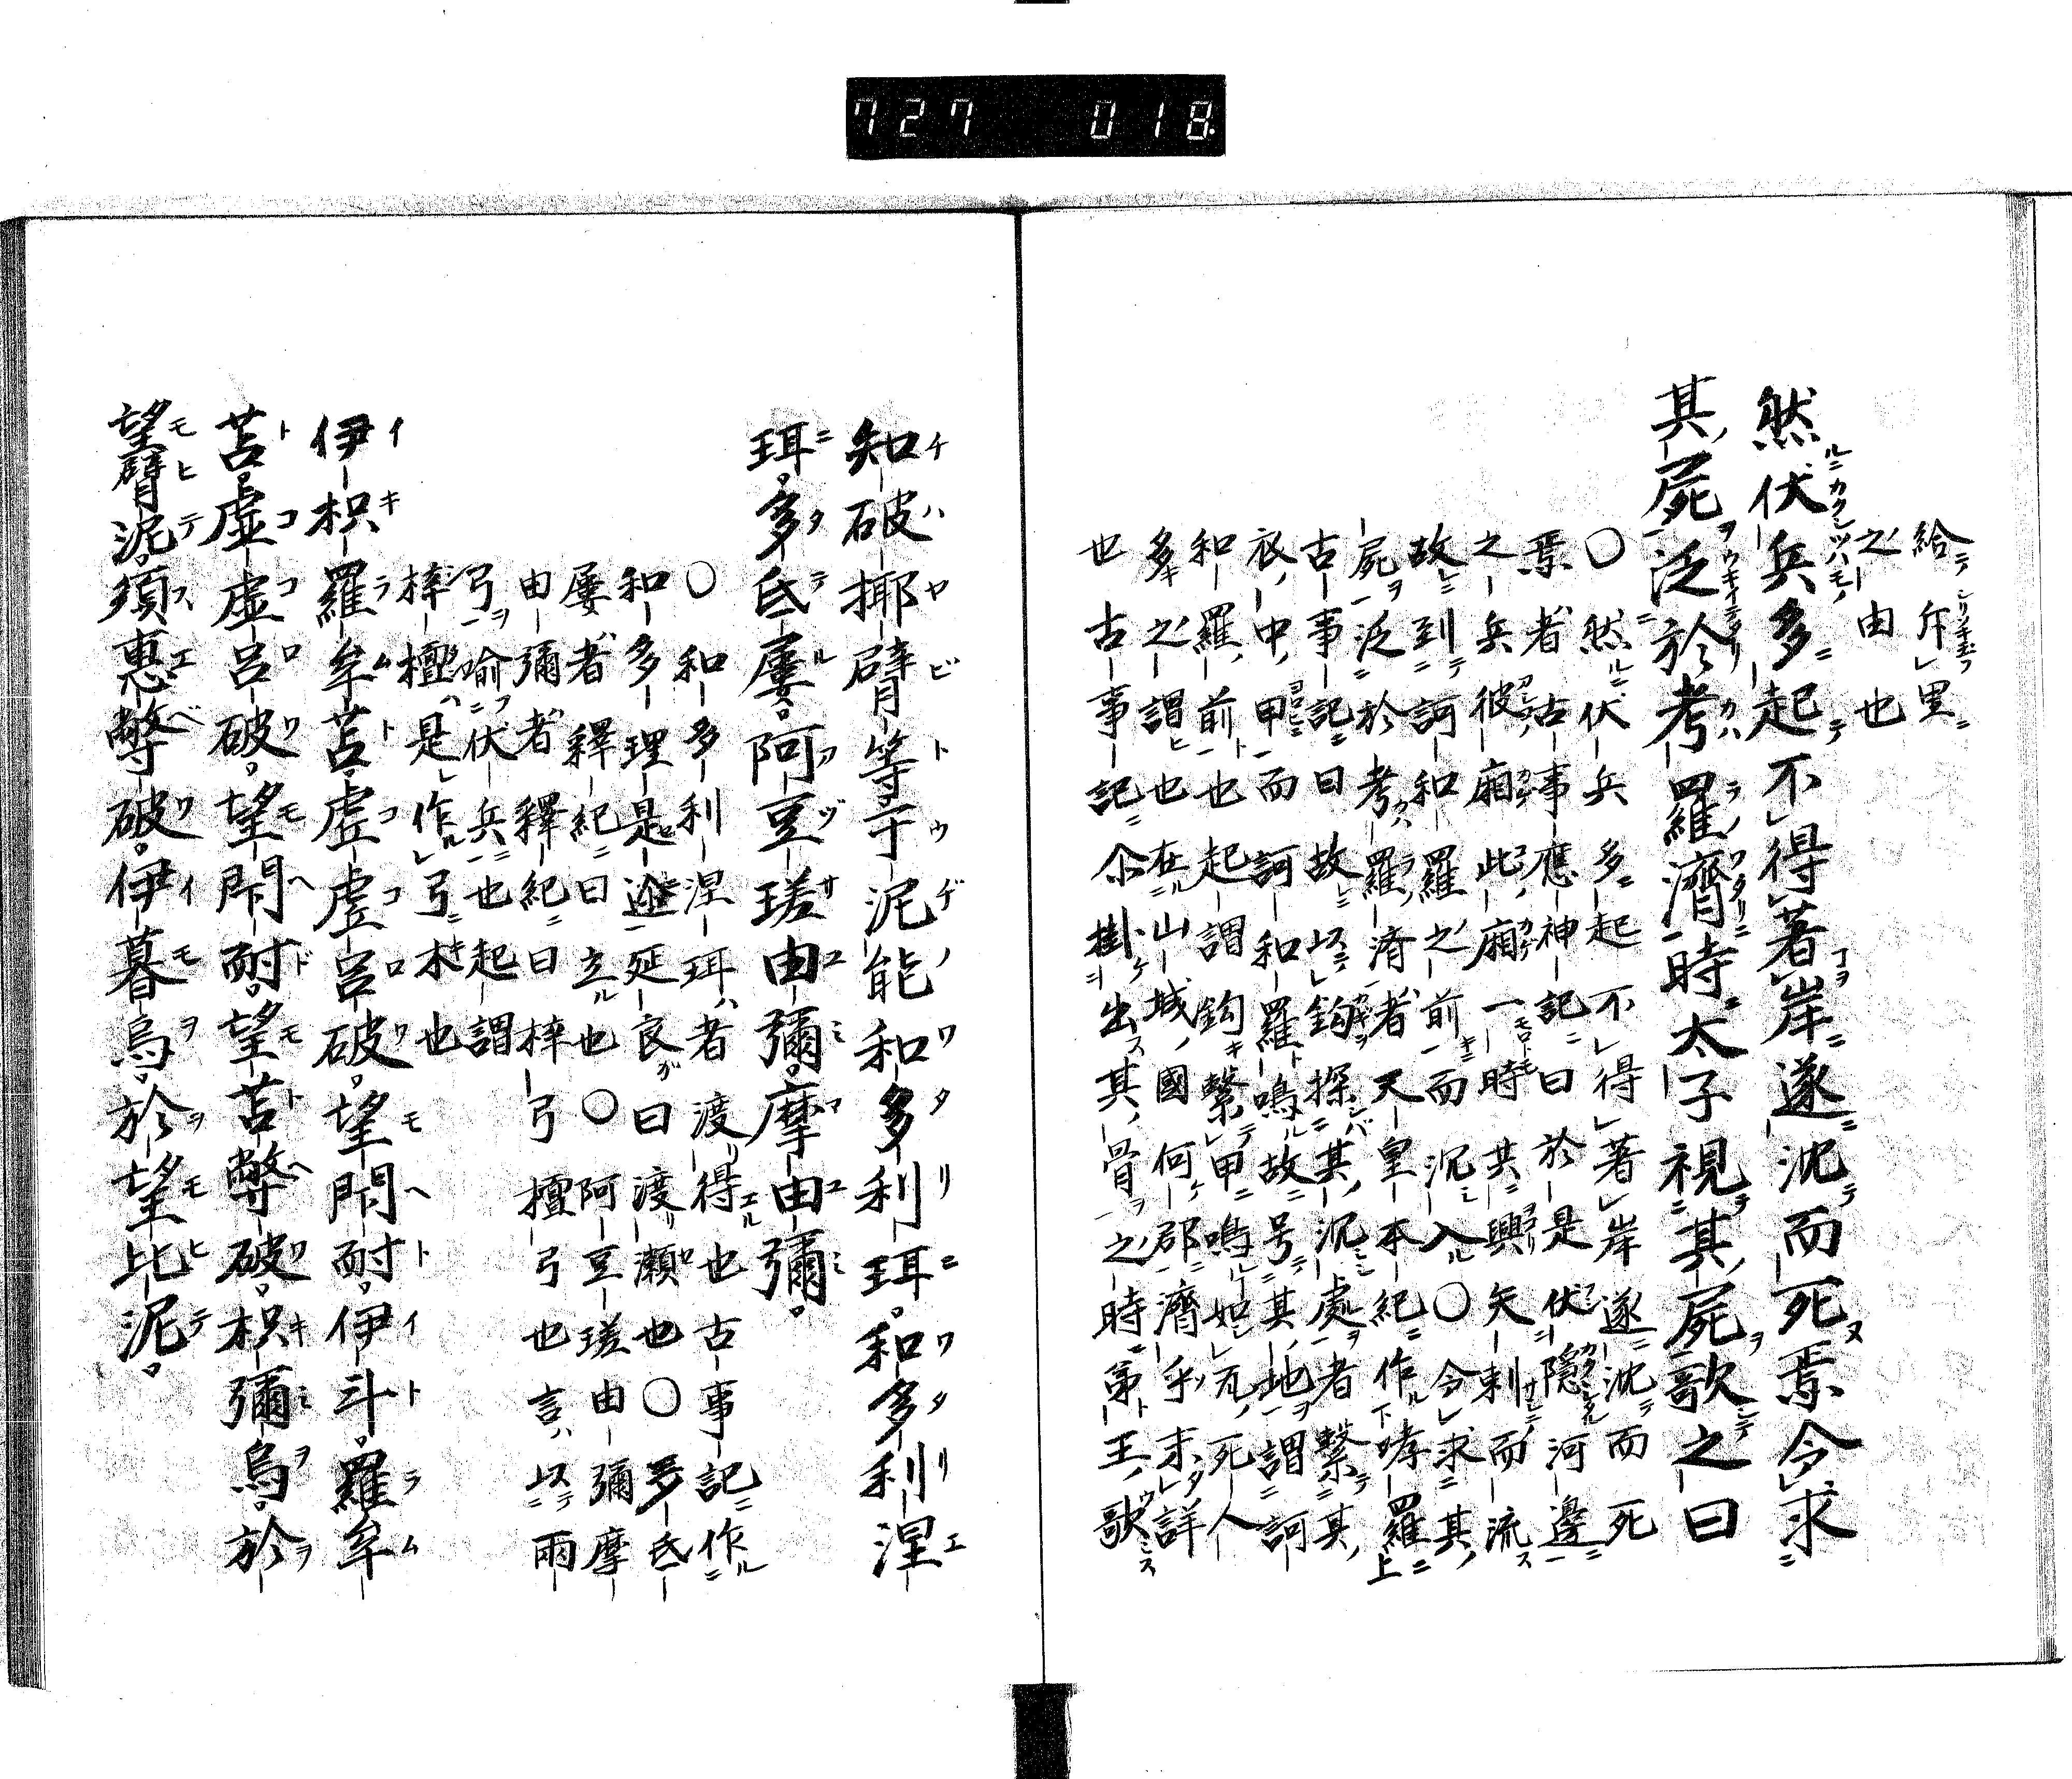 給斥里
之由也
然伏兵多起不得著岸遂沈而死焉令求
其屍泛於考羅濟時太子視其屍歌之曰
〇然伏兵多起不得著岸遂沈而死
焉者古事應神記曰於是伏隱河邊
之兵彼廂此廂一時共興矢刺而流
故到訶和羅之前而沉入〇令求其
屍泛於考羅濟者天皇本紀作哮羅
古事記曰故以鈎探其沉處者繫其
衣中甲而訶和羅鳴故号其地謂訶
和羅前也起謂鈎繫甲鳴如瓦死人
多之謂也在山城國何郡濟乎未詳
也古事記尒掛出其骨之時第王歌
知破揶臂等于泥能和多利珥。和多利涅
珥。多氐屢。阿豆瑳由彌。摩由彌。
〇和多利涅珥者渡得也古事記作
和多理是延良曰渡瀬也〇多氐
屢者釋紀曰立也〇阿豆瑳由彌摩
由彌者釋紀曰梓弓檀弓也言以兩
弓喻伏兵也起謂
梓檀是作弓木也
伊枳羅牟苔。虚虚呂破。望閇耐。伊斗。羅牟
苔。虚虚呂破。望閇耐。望苔弊破。枳彌烏。於
望臂泥。須惠弊破。伊暮烏。於望比泥。
727 018